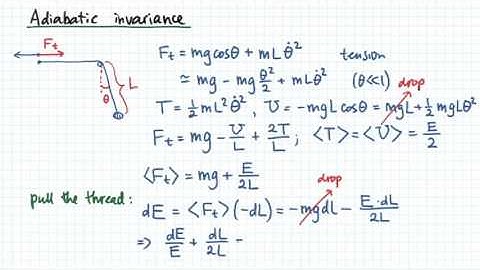 Adiabatic invariance
F_t
L
θ
F_t = mg cosθ + mLθ̇² tension
≃ mg - mg θ²/2 + mLθ̇² (θ≪1) drop
T = ½ mL²θ̇², U = -mgL cosθ = mgL + ½ mgLθ²
F_t = mg - U/L + 2T/L ; ⟨T⟩ = ⟨U⟩ = E/2
⟨F_t⟩ = mg + E/2L drop
pull the thread: dE = ⟨F_t⟩(-dL) = -mgdL - E·dL/2L
⇒ dE/E + dL/2L -